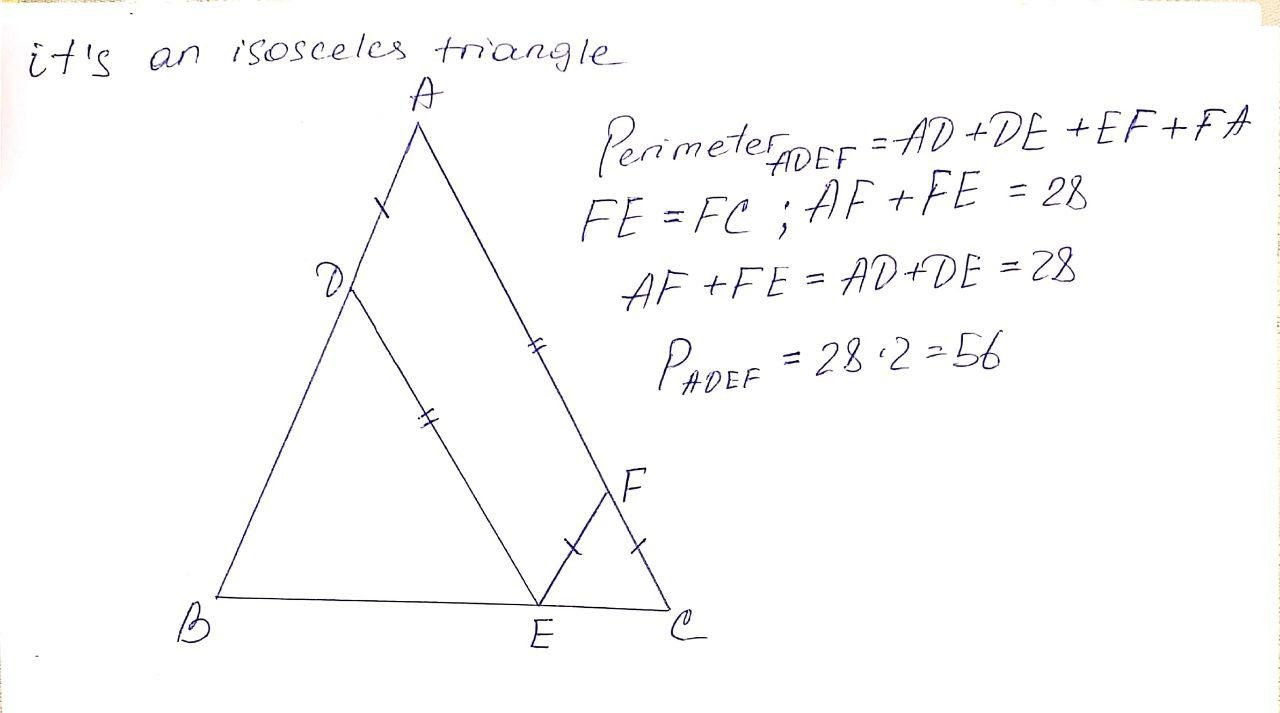 it's an isosceles triangle
A
Perimeter ADEF = AD + DE + EF + FA
FE = FC ; AF + FE = 28
D
AF + FE = AD + DE = 28
P ADEF = 28 · 2 = 56
F
B
E
C